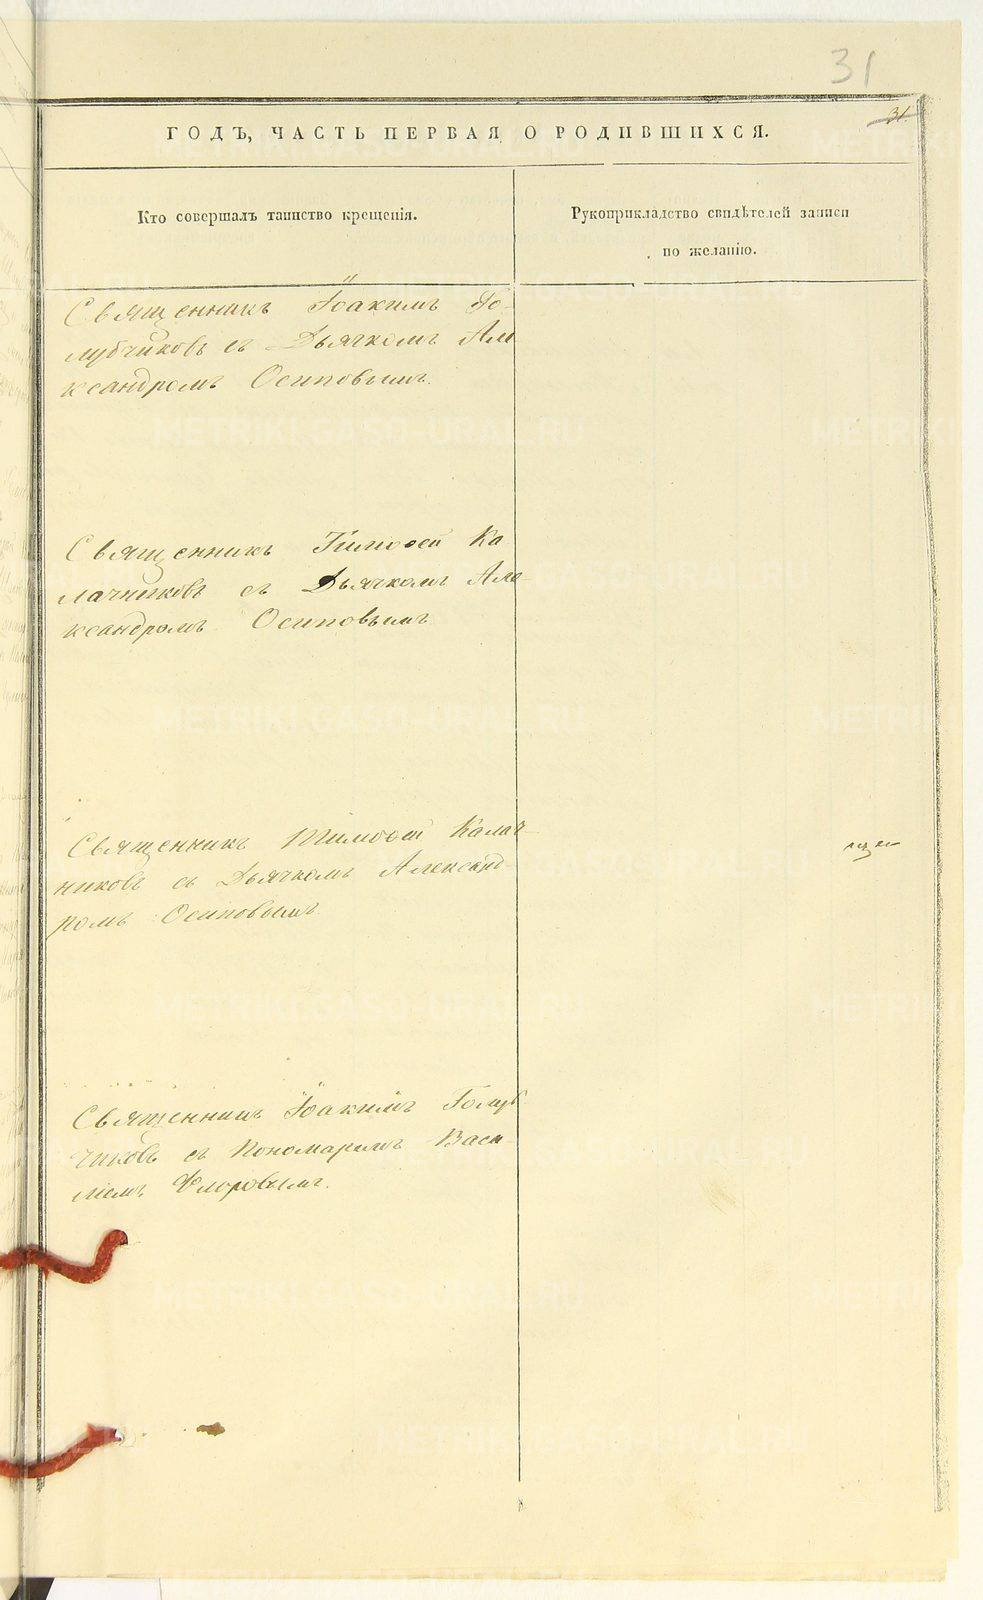 31
31.
ГОДЪ, ЧАСТЬ ПЕРВАЯ О РОДИВШИХСЯ.
Кто совершалъ таинство крещенія.
Рукоприкладство свидѣтелей записи
по желанію.
Священникъ Іоакимъ Го-
лубчиковъ съ Дьячкомъ Але
ксандромъ Осиповымъ.
Священникъ Тимоѳей Ка
лачниковъ съ Дьячкомъ Але-
ксандромъ Осиповымъ
Священникъ Тимоѳей Калач-
никовъ съ Дьячкомъ Александ-
ромъ Осиповымъ
Священникъ Іоакимъ Голуб
чиковъ съ Пономаремъ Васи-
ліемъ Флоровымъ.
METRIKI.GASO-URAL.RU